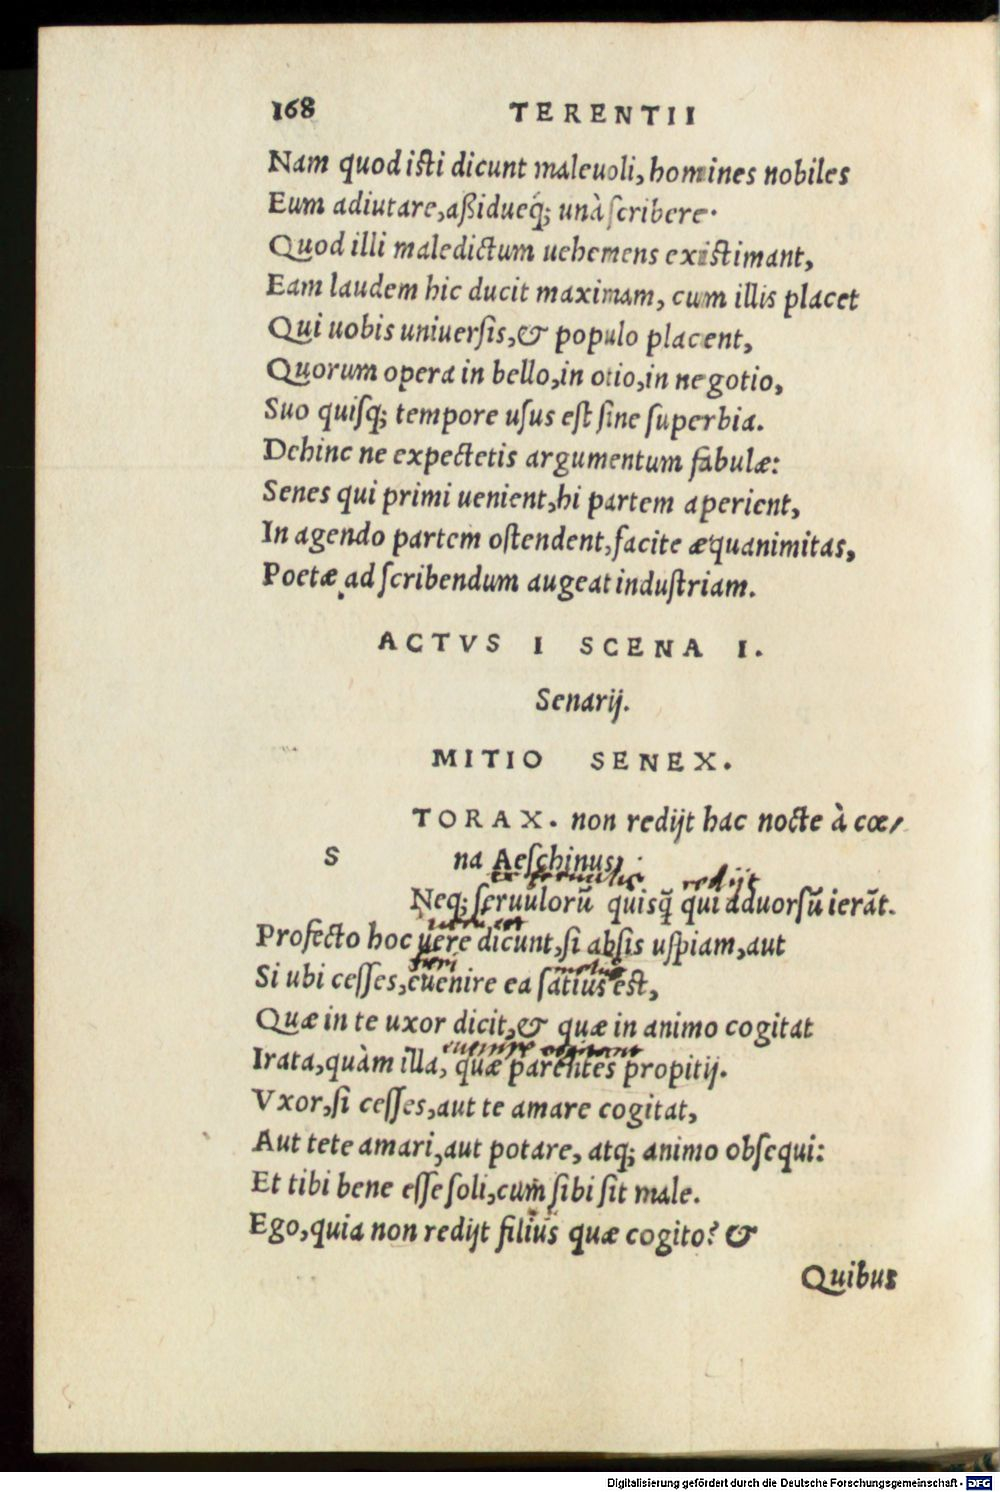 168 TERENTII
Nam quod isti dicunt maleuoli, homines nobiles
Eum adiutare, aßidueq́; unà ſcribere.
Quod illi maledictum uehemens existimant,
Eam laudem hic ducit maximam, cum illis placet
Qui uobis uniuerſis, & populo placent,
Quorum opera in bello, in otio, in negotio,
Suo quiſq; tempore uſus eſt ſine ſuperbia.
Dehinc ne expectetis argumentum fabulæ:
Senes qui primi uenient, hi partem aperient,
In agendo partem oſtendent, facite æquanimitas,
Poetæ ad ſcribendum augeat induſtriam.
ACTVS I SCENA I.
Senarij.
MITIO SENEX.
S TORAX. non redijt hac nocte à cœ/
na Aeſchinus,
ex ſeruulis redijt
Neq; ſeruulorũ quisq̃ qui aduorſũ ierãt.
uerū est
Profecto hoc uere dicunt, ſi abſis uſpiam, aut
fieri melius
Si ubi ceſſes, euenire ea ſatius eſt,
Quæ in te uxor dicit, & quæ in animo cogitat
euenire cogitant
Irata, quàm illa, quæ parentes propitij.
Vxor, ſi ceſſes, aut te amare cogitat,
Aut tete amari, aut potare, atq; animo obſequi:
Et tibi bene eſſe ſoli, cum ſibi ſit male.
Ego, quia non redijt filius quæ cogito? &
Quibus
Digitalisierung gefördert durch die Deutsche Forschungsgemeinschaft - DFG